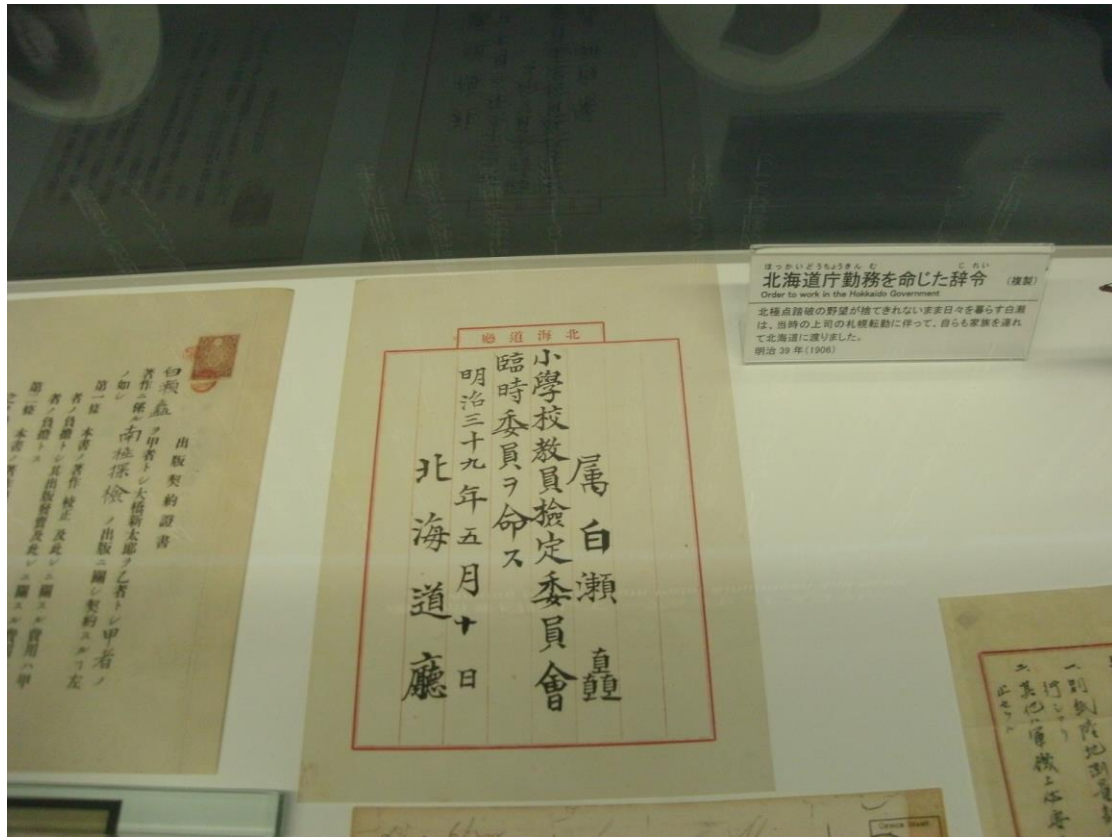 ほっかいどうちょうきんむ じれい
北海道庁勤務を命じた辞令 (複製)
Order to work in the Hokkaido Government
北極点踏破の野望が捨てきれないまま日々を暮らす白瀬
は、当時の上司の札幌転勤に伴って、自らも家族を連れ
て北海道に渡りました。
明治 39 年(1906)
北海道廳
属 白瀬 矗
小學校教員檢定委員會
臨時委員ヲ命ス
明治三十九年五月十日
北海道廳
出版契約證書
白瀬矗ヲ甲者トシ大橋新太郎ヲ乙者トシ甲者ノ
著作ニ係ル南極探檢ノ出版ニ關シ契約スル┐左
ノ如シ
第一條 本書ノ著作 校正 及此レニ關スル費用ハ甲
者ノ負擔トシ其出版發賣及此レニ關スル費用
者ノ負擔トス
第二條 本書ノ
一、別紙陸地測量